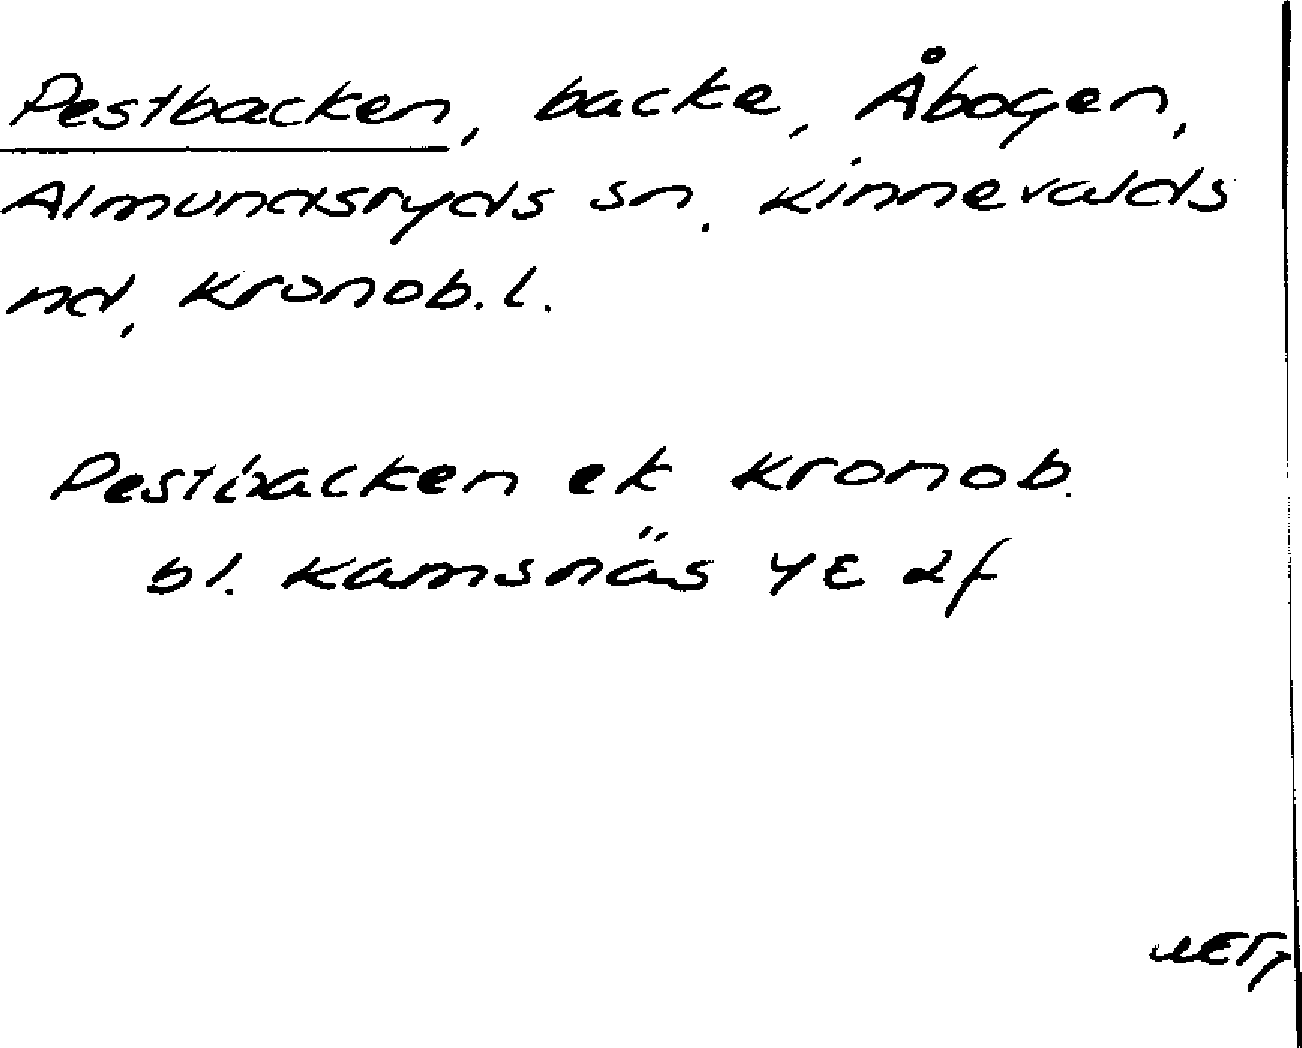 Pestbacken, backe, Åbogen,
Almundsryds sn. Kinnevalds
nd, Kronob. l.
Pestbacken ek Kronob.
bl. Kamsnäs 4E 2f